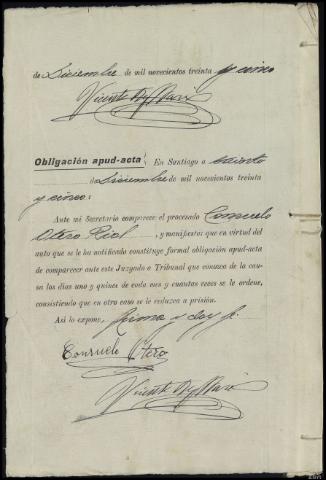 de Diciembre de mil novecientos treinta y cinco
Obligación apud-acta: En Santiago a
de Diciembre de mil novecientos treinta
y cinco:
Ante mi Secretario comparece el procesado Consuelo
Otero Rial, y manifiesta: que en virtud del
auto que se le ha notificado constituye formal obligación apud-acta
de comparecer ante este Juzgado o Tribunal que conozca de la cau-
sa los días uno y quince de cada mes y cuantas veces se le ordene,
consistiendo que en otro caso se le reduzca a prisión.
Así lo expone, firma y doy fe.
Consuelo Otero